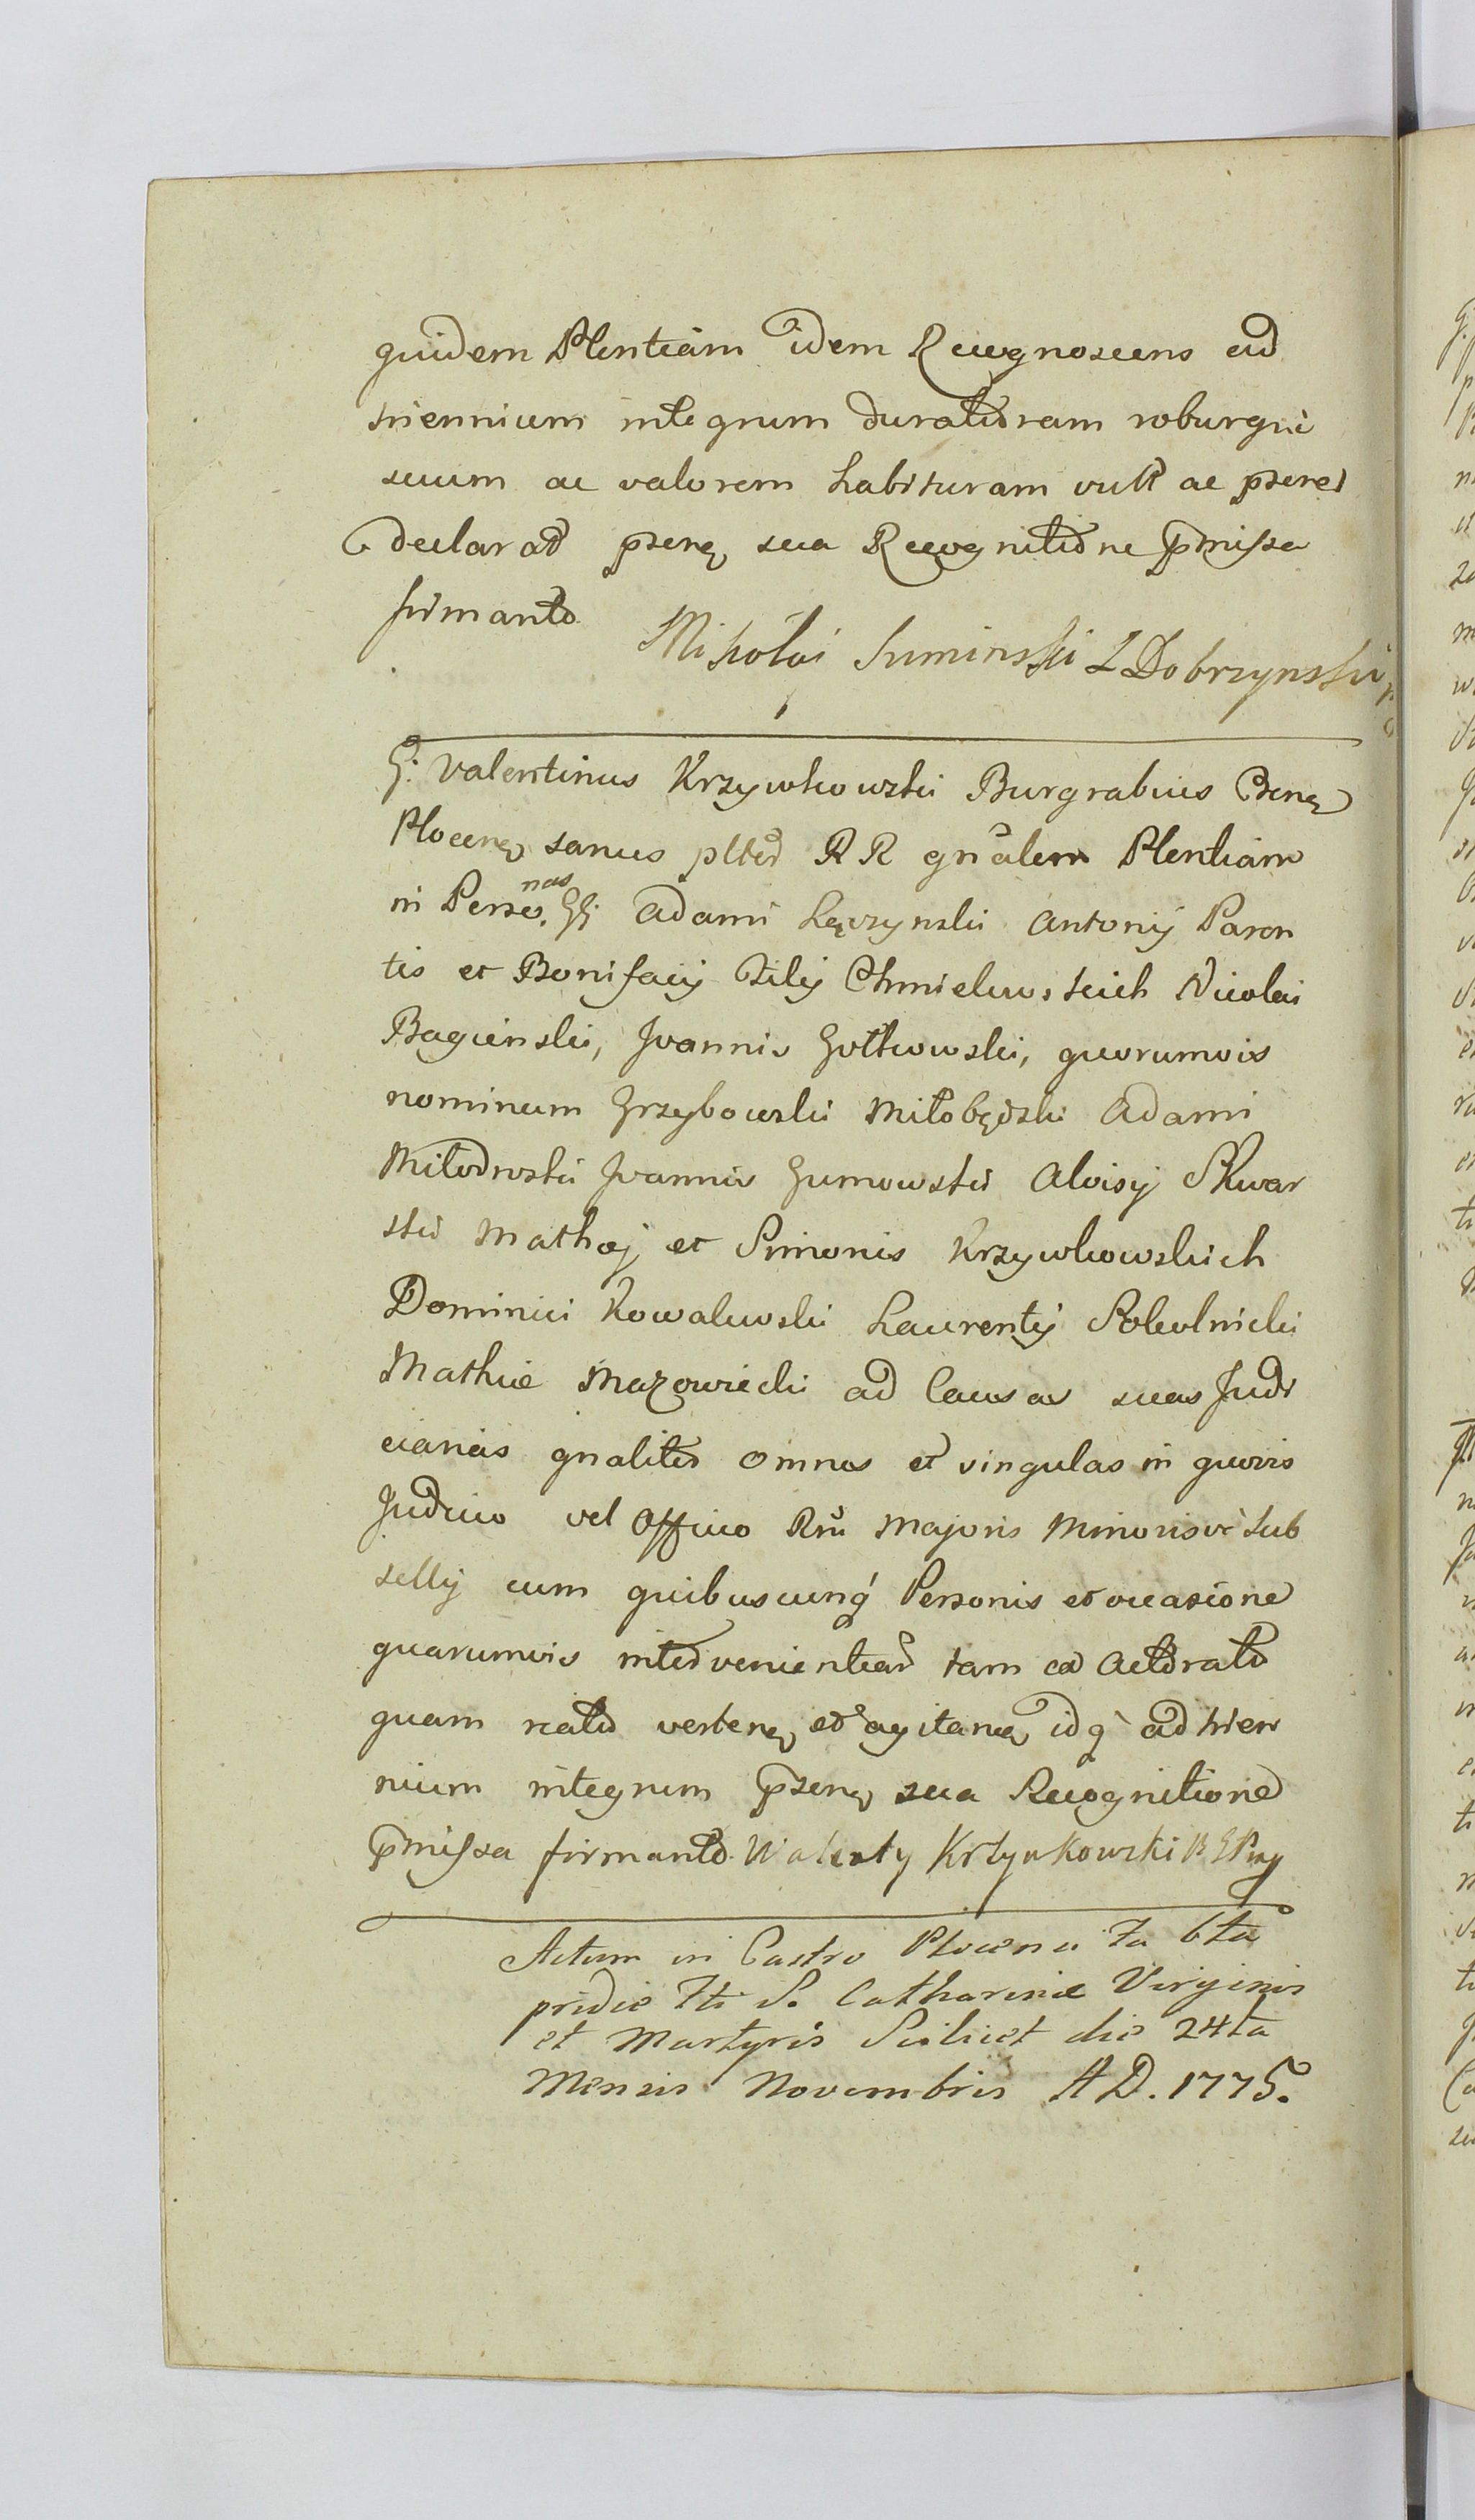 quidem Plentiam idem Recognoscens ad
triennium integrum duraturam roburque
suum ac valorem habituram vult ac
declarat psenq sua Recognitione pmissa
firmando
Mikołai Suminski Dobrzynski
G: Valentinus Krzywkowski Burgrabius
Plocenq sanus plter RR gnalem Plentiam
in Perso.nas GG Adami Łęczynski Antonij Paren
tis et Bonifacij Filij Chmielewskich Nicolai
Bagienski, Joannis Gotkowski, quorumvis
nominum Grzybowski Miłobędzki Adami
Miłodroski Joannis Gumowski Aloisij Skwar
ski Mathæj et Simonis Krzywkowskich
Dominici Kowalewski Laurentij
Mathiæ Mazowiecki ad Causas suas Judi
ciarias gnaliter omnes et singulas in quovis
Judicio vel Officio Rni Majoris Minorisve Sub
sellij cum quibuscunq Personis et occasione
quarumvis intervenientiar tam ex Actoratu
quam reatu vertenq et agitanq idq ad trien
nium integrum psenq sua Recognitione
pmissa firmando Walenty Krzywkowski
Actum in Castro Plocensi Fa 6ta
pridie Fti S. Catharinæ Virginis
et Martyris Scilicet die 24ta
Mensis Novembris AD. 1775.